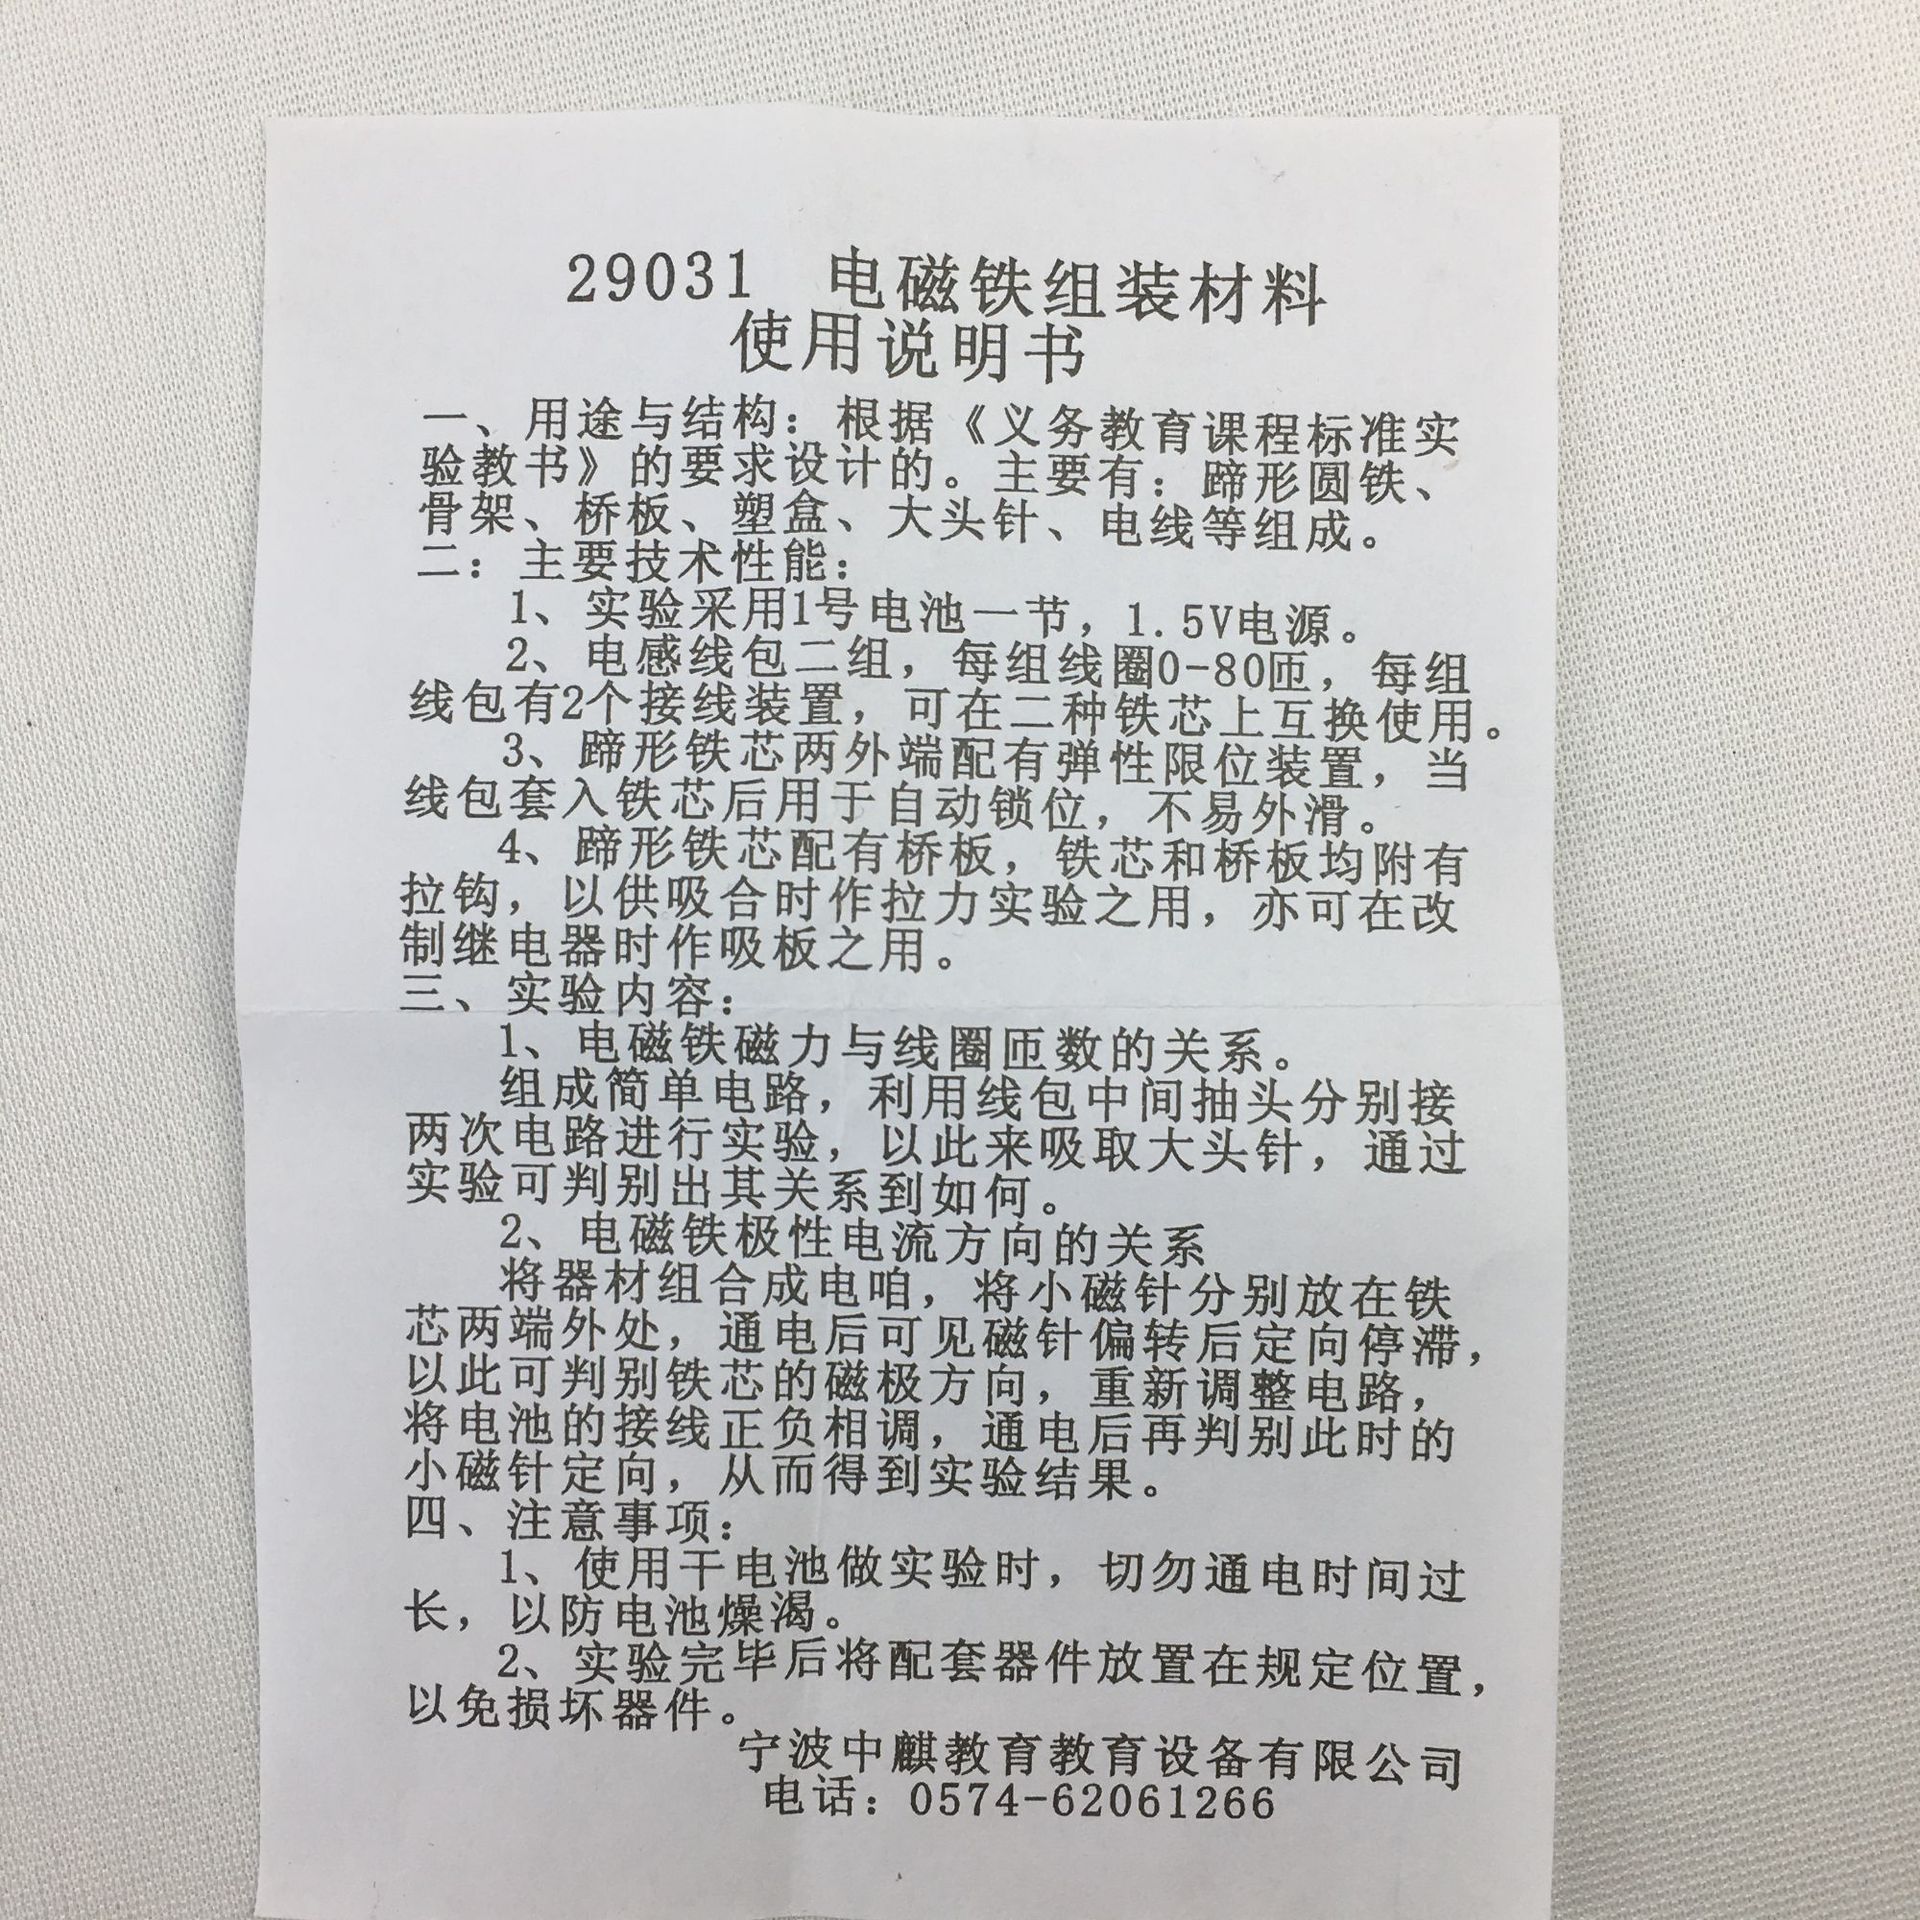 29031 电磁铁组装材料
使用说明书
一、用途与结构：根据《义务教育课程标准实
验教书》的要求设计的。主要有：蹄形圆铁、
骨架、桥板、塑盒、大头针、电线等组成。
二：主要技术性能：
1、实验采用1号电池一节，1.5V电源。
2、电感线包二组，每组线圈0-80匝，每组
线包有2个接线装置，可在二种铁芯上互换使用。
3、蹄形铁芯两外端配有弹性限位装置，当
线包套入铁芯后用于自动锁位，不易外滑。
4、蹄形铁芯配有桥板，铁芯和桥板均附有
拉钩，以供吸合时作拉力实验之用，亦可在改
制继电器时作吸板之用。
三、实验内容：
1、电磁铁磁力与线圈匝数的关系。
组成简单电路，利用线包中间抽头分别接
两次电路进行实验，以此来吸取大头针，通过
实验可判别出其关系到如何。
2、电磁铁极性电流方向的关系
将器材组合成电咱，将小磁针分别放在铁
芯两端外处，通电后可见磁针偏转后定向停滞，
以此可判别铁芯的磁极方向，重新调整电路，
将电池的接线正负相调，通电后再判别此时的
小磁针定向，从而得到实验结果。
四、注意事项：
1、使用干电池做实验时，切勿通电时间过
长，以防电池燥渴。
2、实验完毕后将配套器件放置在规定位置，
以免损坏器件。
宁波中麒教育教育设备有限公司
电话：0574-62061266